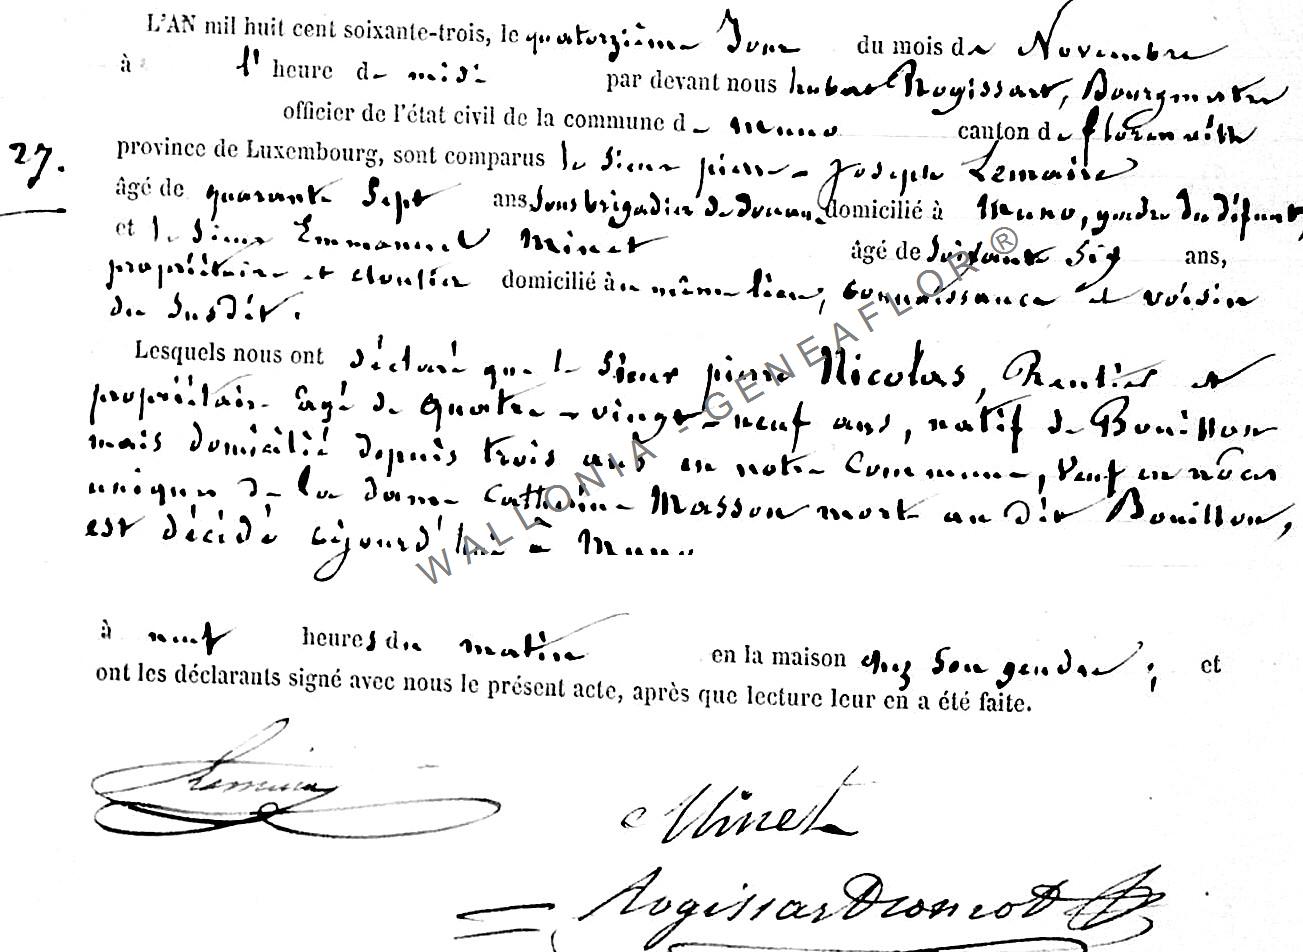 L'AN mil huit cent soixante-trois, le quatorzième Jour du mois de Novembre
à l' heure de midi par devant nous hubert Rogissart, Bourgmestre
officier de l'état civil de la commune de muno canton de florenville
27. province de Luxembourg, sont comparus le Sieur pierre Joseph Lemaire
âgé de quarante Sept ans Sous brigadier de douane domicilié à Muno, gendre du défunt,
et le Sieur Emmanuel Minet âgé de Soixante Six ans,
propriétaire et cloutier domicilié au même lieu, connaissance et voisin
du Susdit.
Lesquels nous ont déclaré que le Sieur pierre Nicolas, Rentier et
propriétaire Eagé de quatre-vingt-neuf ans, natif de Bouillon
mais domicilié depuis trois ans en notre Commune, Veuf en
unique de la dame Catherine Masson morte au dit Bouillon,
est décédé cejourd'hui à Muno
à neuf heures du matin en la maison chez Son gendre ; et
ont les déclarants signé avec nous le présent acte, après que lecture leur en a été faite.
Lemaire
Minet
Rogissart
WALLONIA - GENEAFLOR ®